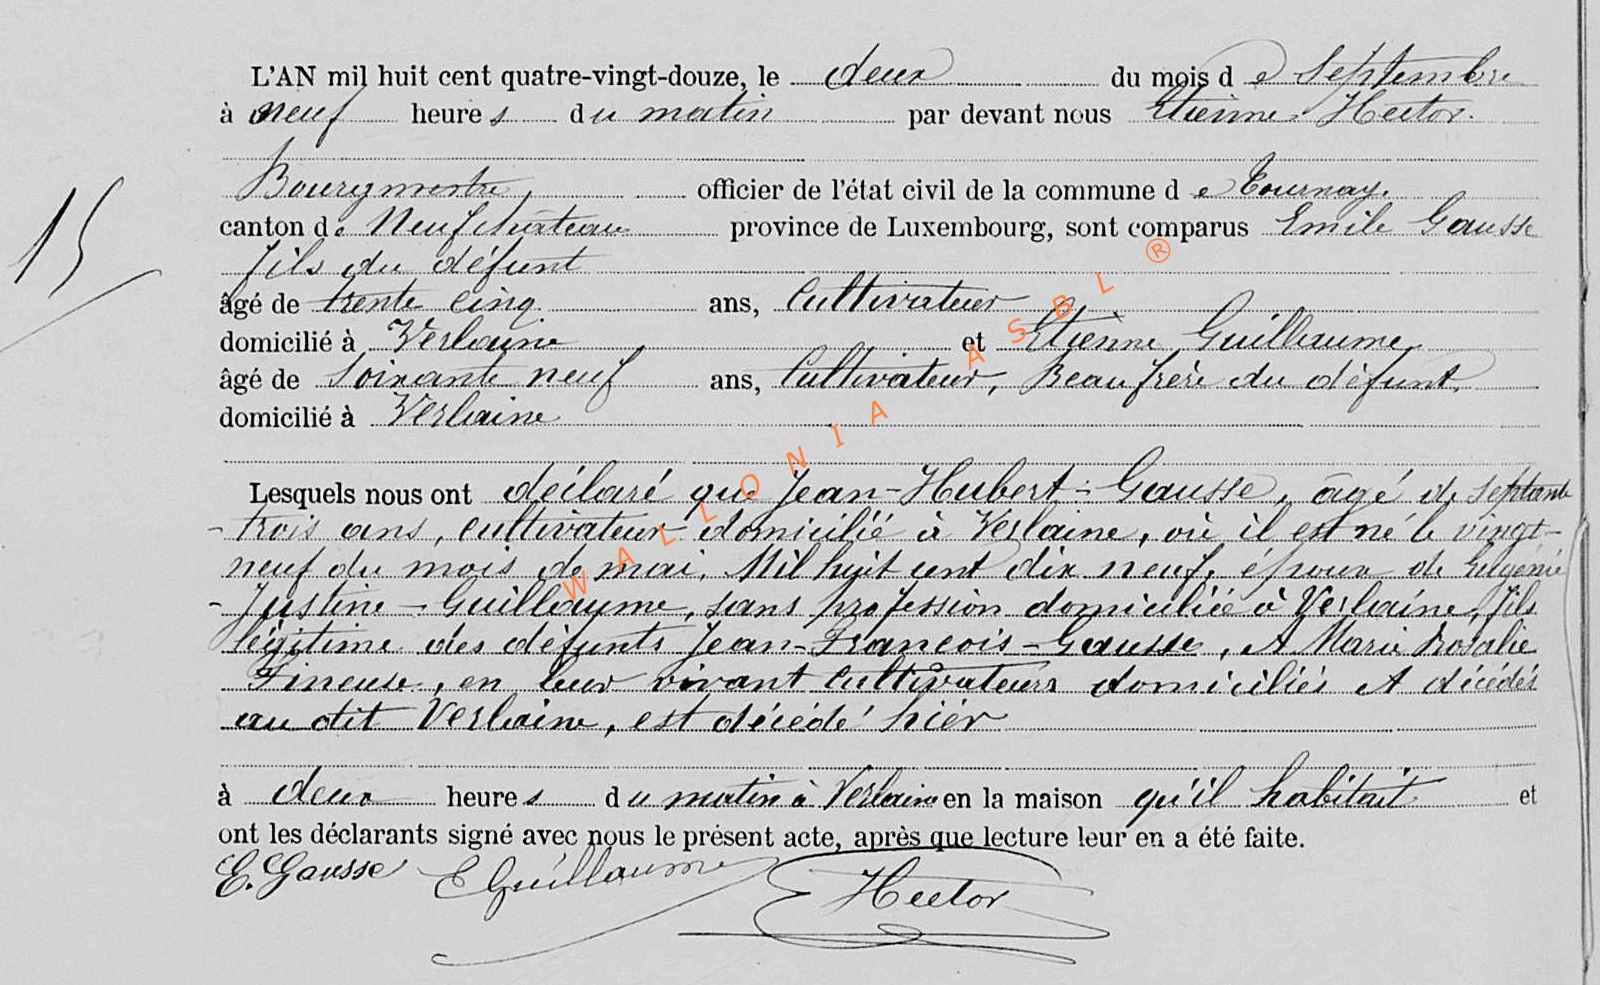 L'AN mil huit cent quatre-vingt-douze, le deux du mois de Septembre
à neuf heures du matin par devant nous Etienne Hector.
Bourgmestre, officier de l'état civil de la commune de Tournay.
canton de Neufchâteau province de Luxembourg, sont comparus Emile Gausse
fils du défunt
âgé de trente cinq ans, Cultivateur
domicilié à Verlaine et Etienne Guillaume,
âgé de Soixante neuf ans, Cultivateur, Beau frère du défunt.
domicilié à Verlaine
15
Lesquels nous ont déclaré que Jean-Hubert-Gausse, âgé de septante
-trois ans, cultivateur domicilié à Verlaine, où il est né le vingt-
neuf du mois de mai, Mil huit cent dix neuf, époux de Eugénie
-Justine-Guillaume, sans profession domiciliée à Verlaine, fils
légitime des défunts Jean-François-Gausse, et Marie Rosalie
Fineuse, en leur vivant cultivateurs domiciliés et décédés
au dit Verlaine, est décédé hier
à deux heures du matin à Verlaine en la maison qu'il habitait et
ont les déclarants signé avec nous le présent acte, après que lecture leur en a été faite.
E. Gausse E Guillaume Hector
WALLONIA ASBL ®